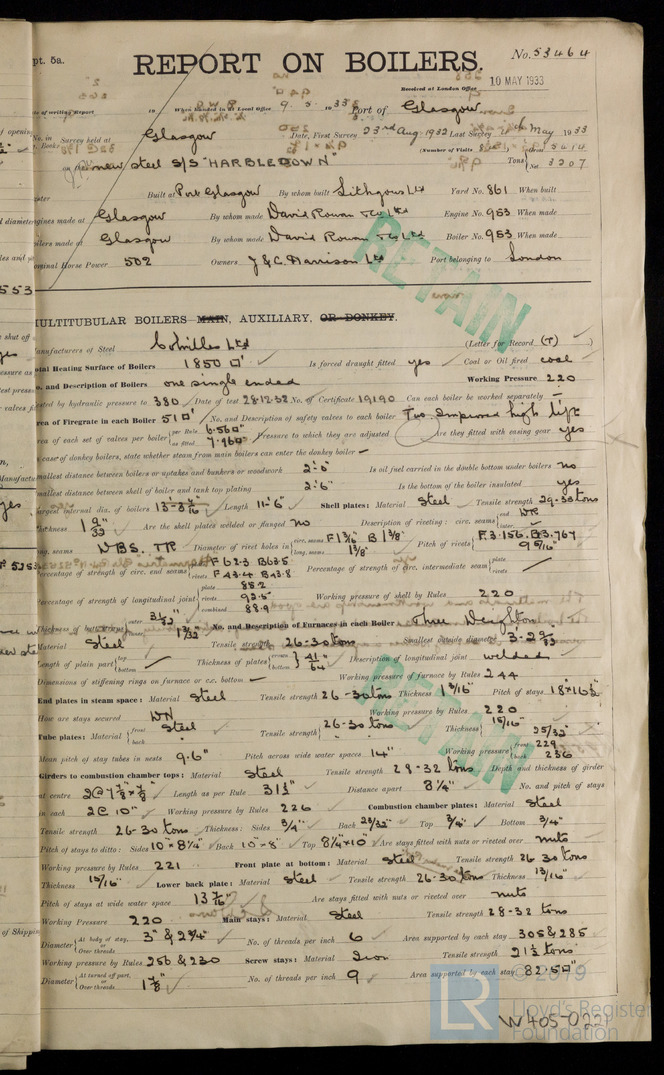 pt. 5a.
REPORT ON BOILERS.
No. 53464
Received at London Office
10 MAY 1933
of writing Report
When handed in at Local Office 9. 5. 1933 Port of Glasgow
No. in
Survey held at Glasgow Date, First Survey 23rd Aug. 1932 Last Survey May 1933
(Number of Visits
on the new steel S/S "HARBLEDOWN" Tons Net 3207
Built at Port Glasgow By whom built Lithgows Ltd Yard No. 861 When built
Engines made at Glasgow By whom made David Rowan & Co Ltd Engine No. 953 When made
Boilers made at Glasgow By whom made David Rowan & Co Ltd Boiler No. 953 When made
Nominal Horse Power 502 Owners J & C. Harrison Ltd Port belonging to London
RETAIN
MULTITUBULAR BOILERS MAIN, AUXILIARY, OR DONKEY.
Manufacturers of Steel Colvilles Ltd (Letter for Record (T) )
Total Heating Surface of Boilers 1850 □' Is forced draught fitted yes Coal or Oil fired coal
No. and Description of Boilers one single ended Working Pressure 220
Tested by hydraulic pressure to 380 Date of test 28.12.32 No. of Certificate 19190 Can each boiler be worked separately —
Area of Firegrate in each Boiler 51 □' No. and Description of safety valves to each boiler Two Improved high lift
Area of each set of valves per boiler per Rule 6.56 □" as fitted 7.96 □" Pressure to which they are adjusted Are they fitted with easing gear yes
In case of donkey boilers, state whether steam from main boilers can enter the donkey boiler —
Smallest distance between boilers or uptakes and bunkers or woodwork 2'-6" Is oil fuel carried in the double bottom under boilers no
Smallest distance between shell of boiler and tank top plating 2'-6" Is the bottom of the boiler insulated yes
Largest internal dia. of boilers Length 11'-6" Shell plates: Material Steel Tensile strength 29-33 tons
Thickness 1 9/32 Are the shell plates welded or flanged no Description of riveting: circ. seams end DR inter. —
long. seams DBS. TR Diameter of rivet holes in circ. seams F 1 3/16 B 1 3/8" long. seams 1 3/8" Pitch of rivets F.3.156. B3.767 9 5/16"
Percentage of strength of circ. end seams plate F 62.3 B63.5 rivets F 43.4 B43.8 Percentage of strength of circ. intermediate seam plate rivets
Percentage of strength of longitudinal joint plate 85.2 rivets 93.5 combined 88.9 Working pressure of shell by Rules 220
Thickness of butt straps outer 31/32" inner 1 1/32 No. and Description of Furnaces in each Boiler Three Deighton
Material Steel Tensile strength 26-30 tons Smallest outside diameter 3'-2 29/32
Length of plain part top bottom Thickness of plates crown bottom 41/64 Description of longitudinal joint welded
Dimensions of stiffening rings on furnace or c.c. bottom — Working pressure of furnace by Rules 244
End plates in steam space: Material Steel Tensile strength 26-30 tons Thickness 1 3/16" Pitch of stays 18"x16 1/2"
How are stays secured DN Working pressure by Rules 220
Tube plates: Material front back Steel Tensile strength 26-30 tons Thickness 15/16" 25/32"
Mean pitch of stay tubes in nests 9.6" Pitch across wide water spaces 14" Working pressure front 229 back 236
Girders to combustion chamber tops: Material Steel Tensile strength 28-32 tons Depth and thickness of girder
at centre 2@ 7 7/8 x 7/8 Length as per Rule 31 1/2" Distance apart 8 1/4" No. and pitch of stays
in each 2@ 10" Working pressure by Rules 226 Combustion chamber plates: Material Steel
Tensile strength 26-30 tons Thickness: Sides 3/4" Back 23/32" Top 3/4" Bottom 3/4"
Pitch of stays to ditto: Sides 10"x8 1/4" Back 10"x8" Top 8 1/4"x10 Are stays fitted with nuts or riveted over nuts
Working pressure by Rules 221 Front plate at bottom: Material Steel Tensile strength 26.30 tons
Thickness 15/16" Lower back plate: Material Steel Tensile strength 26-30 tons Thickness 13/16"
Pitch of stays at wide water space 13 7/16" Are stays fitted with nuts or riveted over nuts
Working Pressure 220 Main stays: Material Steel Tensile strength 28-32 tons
Diameter At body of stay, or Over threads 3" & 2 3/4" No. of threads per inch 6 Area supported by each stay 305 & 285
Working pressure by Rules 256 & 230 Screw stays: Material Iron Tensile strength 21 1/2 tons
Diameter At turned off part, or Over threads 1 7/8" No. of threads per inch 9 Area supported by each stay 82.5 □"
RETAIN
LR © 2019
Lloyd's Register
Foundation
W405-0221